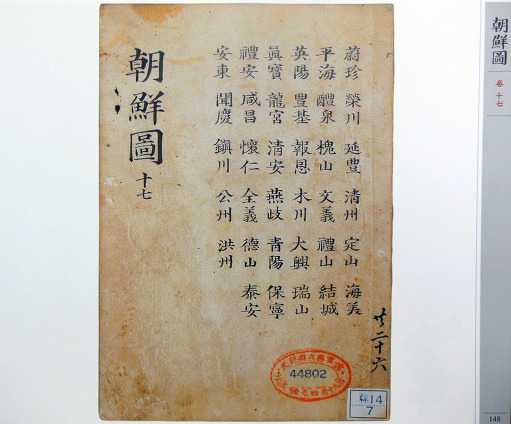 朝鮮圖
十七
蔚珍 榮川 延豊 清州 定山 海美
平海 醴泉 槐山 文義 禮山 結城
英陽 豊基 報恩 木川 大興 瑞山
眞寶 龍宮 清安 燕岐 青陽 保寧
禮安 咸昌 懷仁 全義 德山 泰安
安東 聞慶 鎭川 公州 洪州
二十六
44802
14
7
朝鮮圖
卷十七
148